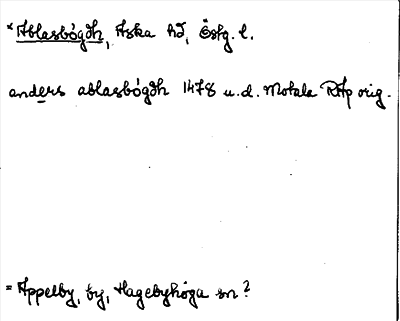 *Ablasbógdh, Aska hd, Östg. l.
anders ablasbógdh 1478 u.d. Motala RAp orig.
= Appelby, by, Hagebyhöga sn?